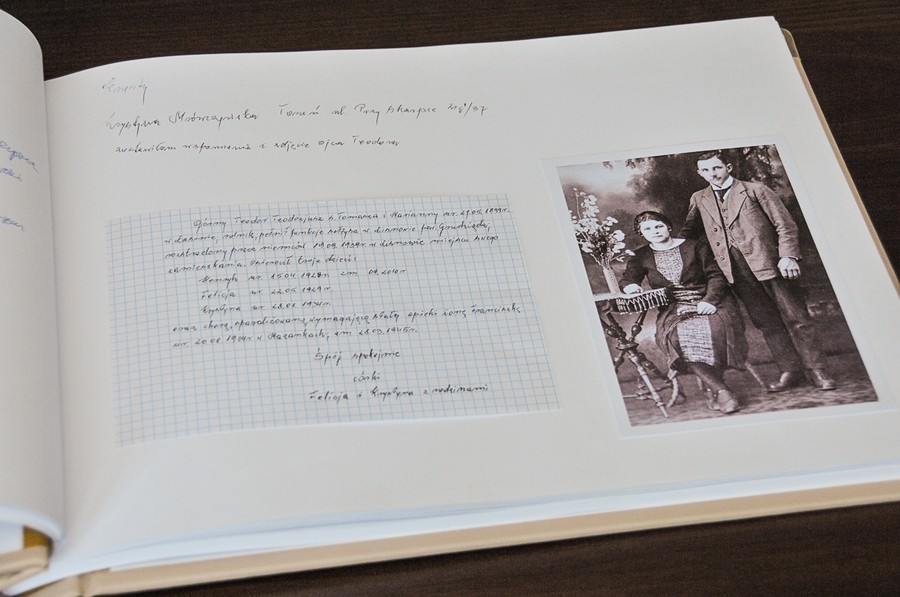 Krystyna Mrówczyńska Toruń ul. Przy Skarpie
zostawiłam wspomnienie i zdjęcie ojca Teodora
Górny Teodor Teodozjusz s. Tomasza i Marianny ur. 27.05.1899r.
w Łasinie, rolnik, pełnił funkcję sołtysa w pow. Grudziądz,
rozstrzelany przez niemców 1939r. w miejscu swego
zamieszkania. Osierocił troje dzieci:
Henryk ur. 15.04.1928r. zm. 2010r
Felicja ur. 22.05.1929r.
Krystyna ur. 28.01.1931r.
oraz chorą, sparaliżowaną wymagającą stałej opieki żonę Franciszkę
ur. 20.08.1904r. w zm. 28.03.1945r.
Śpij spokojnie
córki
Felicja i Krystyna z rodzinami